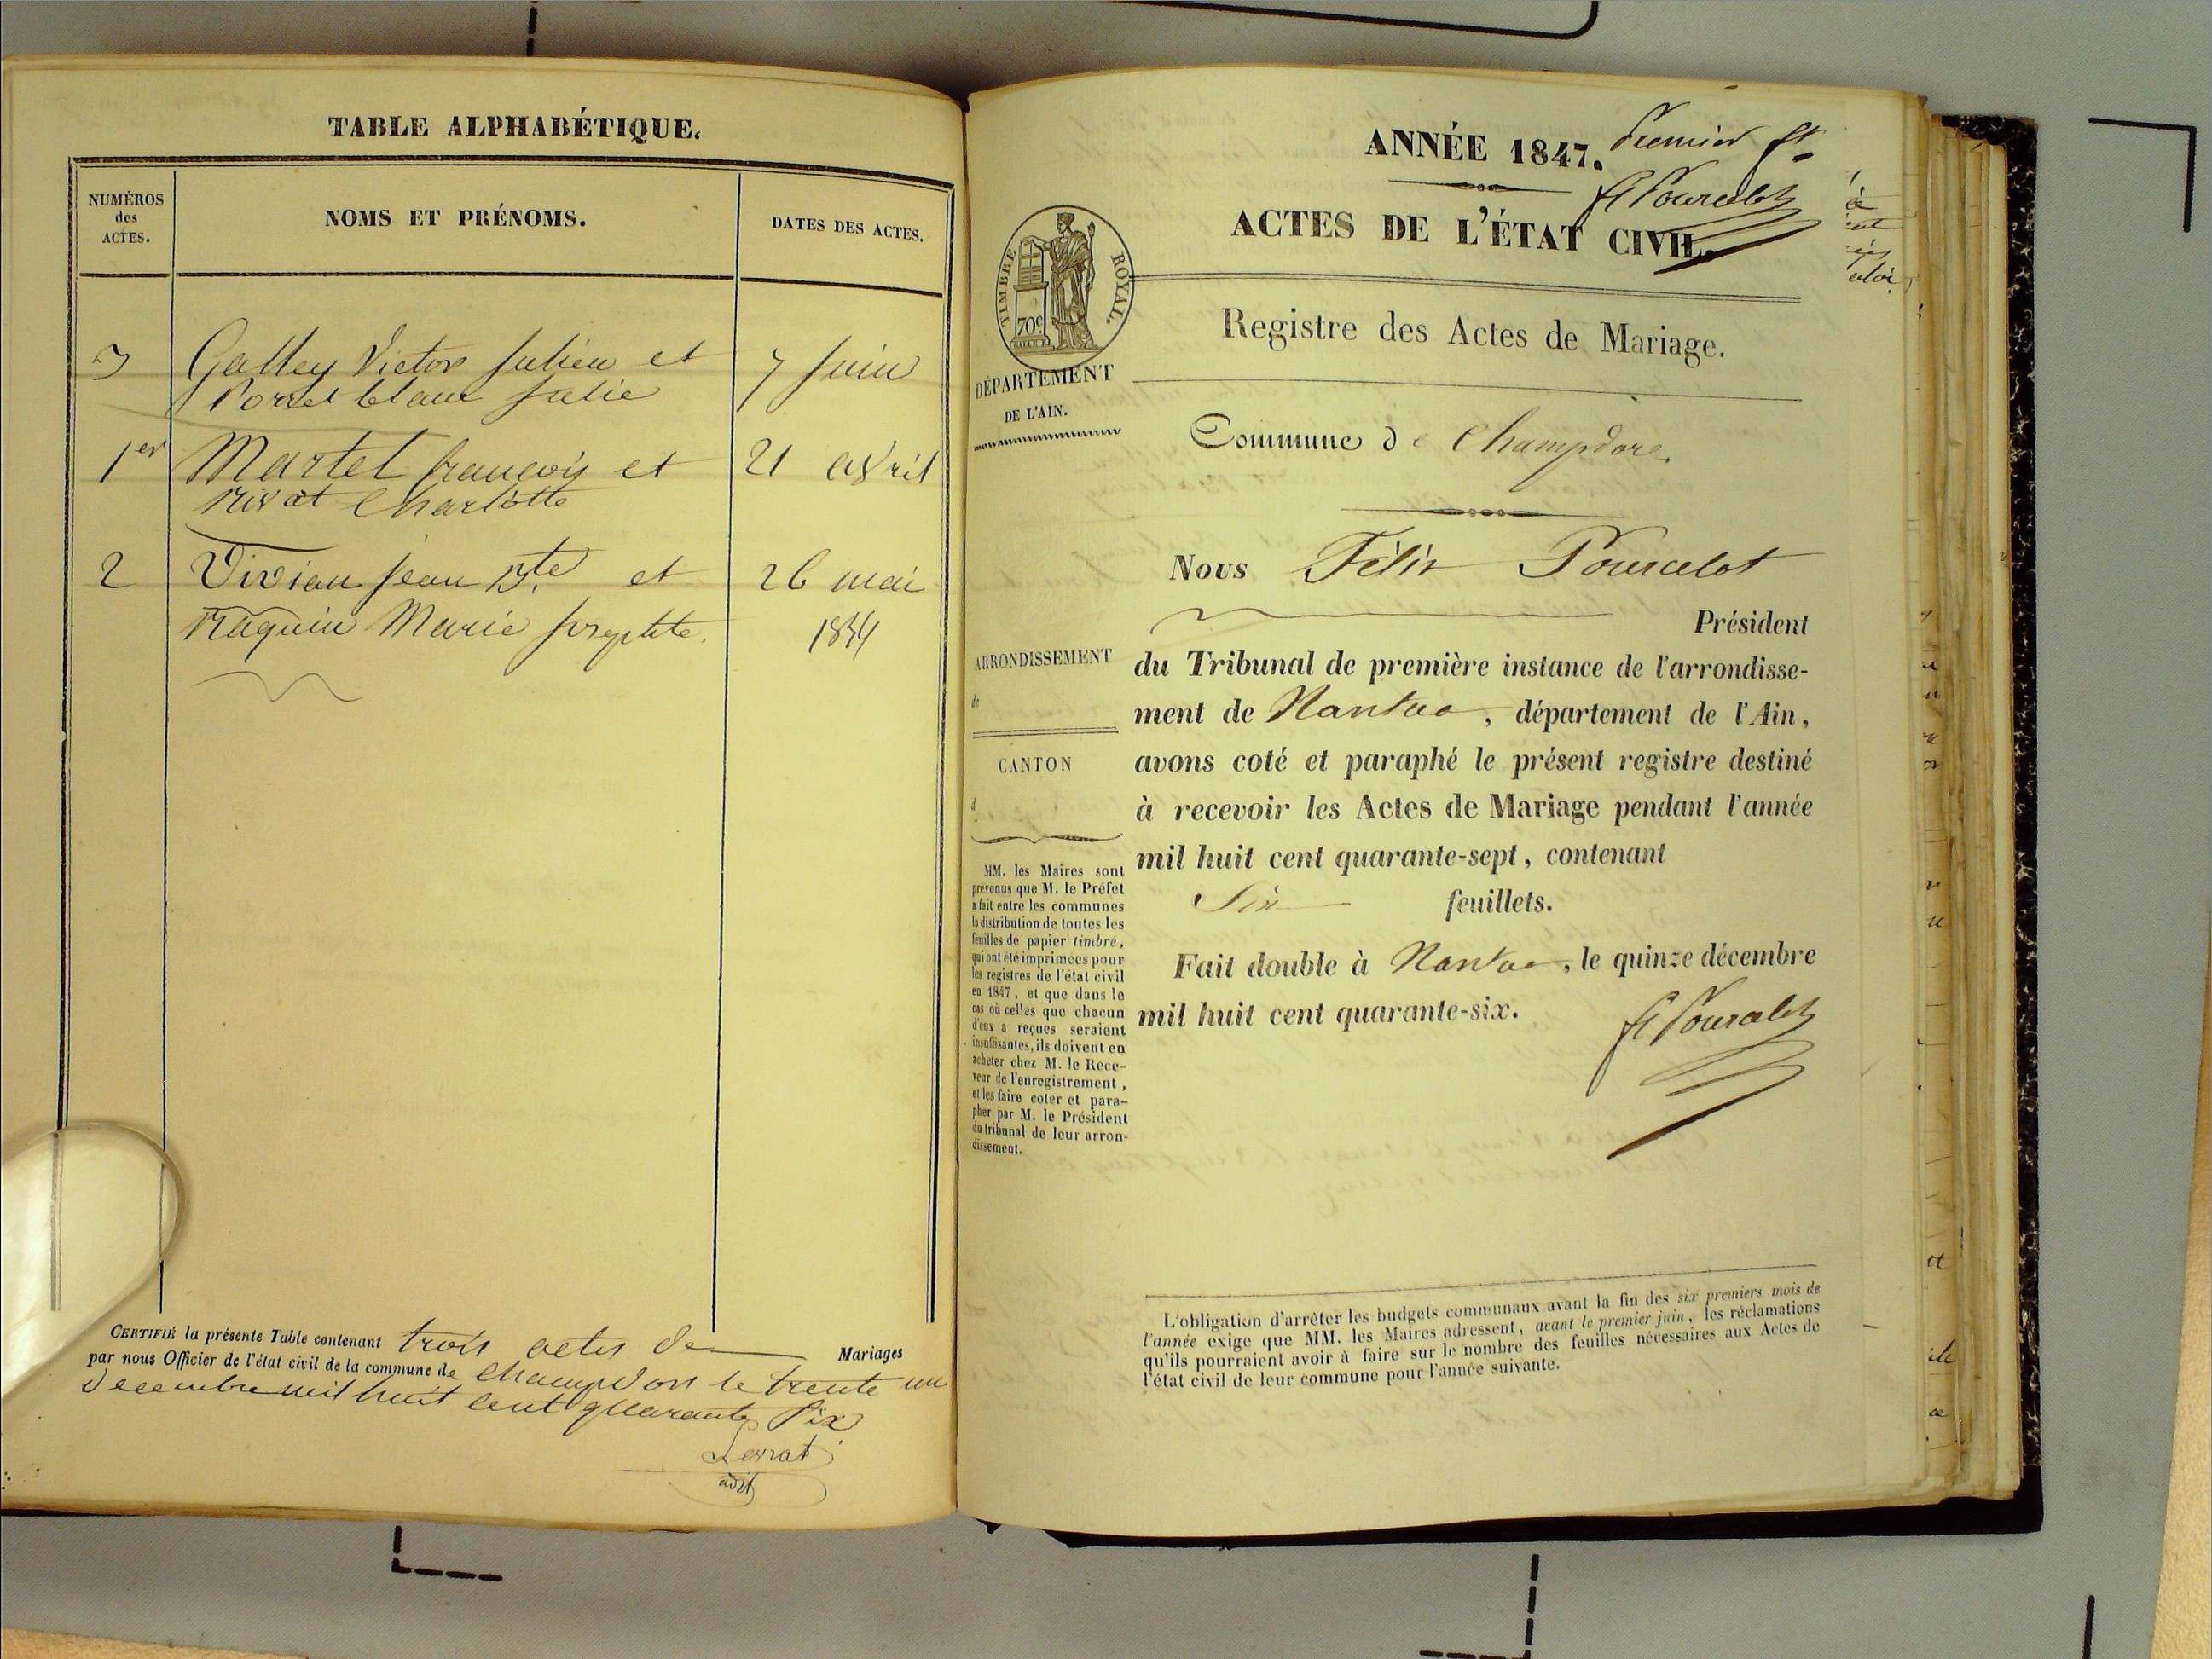 TABLE ALPHABÉTIQUE.
NUMÉROS
des
ACTES.
NOMS ET PRÉNOMS.
DATES DES ACTES.
3 Galley Victor Julien et 7 Juin
blanc Julie
1er Martel françois et 21 avril
Charlotte
2 Vivian jean Bte et 26 mai
Marie
CERTIFIÉ la présente Table contenant trois actes de Mariages
par nous Officier de l'état civil de la commune de Champdor le trente un
decembre mil huit cent quarante Six
adjt
ANNÉE 1847. Premier ft
F Pourcelot
ACTES DE L'ÉTAT CIVIL.
TIMBRE ROYAL.
70c
Registre des Actes de Mariage.
DÉPARTEMENT
DE L'AIN.
Commune de Champdore
Nous Félix Pourcelot
Président
ARRONDISSEMENT
de
du Tribunal de première instance de l'arrondisse-
ment de Nantua, département de l'Ain,
CANTON
d
avons coté et paraphé le présent registre destiné
à recevoir les Actes de Mariage pendant l'année
mil huit cent quarante-sept, contenant
Six feuillets.
Fait double à Nantua, le quinze décembre
mil huit cent quarante-six.
F Pourcelot
MM. les Maires sont
prévenus que M. le Préfet
a fait entre les communes
la distribution de toutes les
feuilles de papier timbré,
qui ont été imprimées pour
les registres de l'état civil
en 1847, et que dans le
cas où celles que chacun
d'eux a reçues seraient
insuffisantes, ils doivent en
acheter chez M. le Rece-
veur de l'enregistrement,
et les faire coter et para-
pher par M. le Président
du tribunal de leur arron-
dissement.
L'obligation d'arrêter les budgets communaux avant la fin des six premiers mois de
l'année exige que MM. les Maires adressent, avant le premier juin, les réclamations
qu'ils pourraient avoir à faire sur le nombre des feuilles nécessaires aux Actes de
l'état civil de leur commune pour l'année suivante.